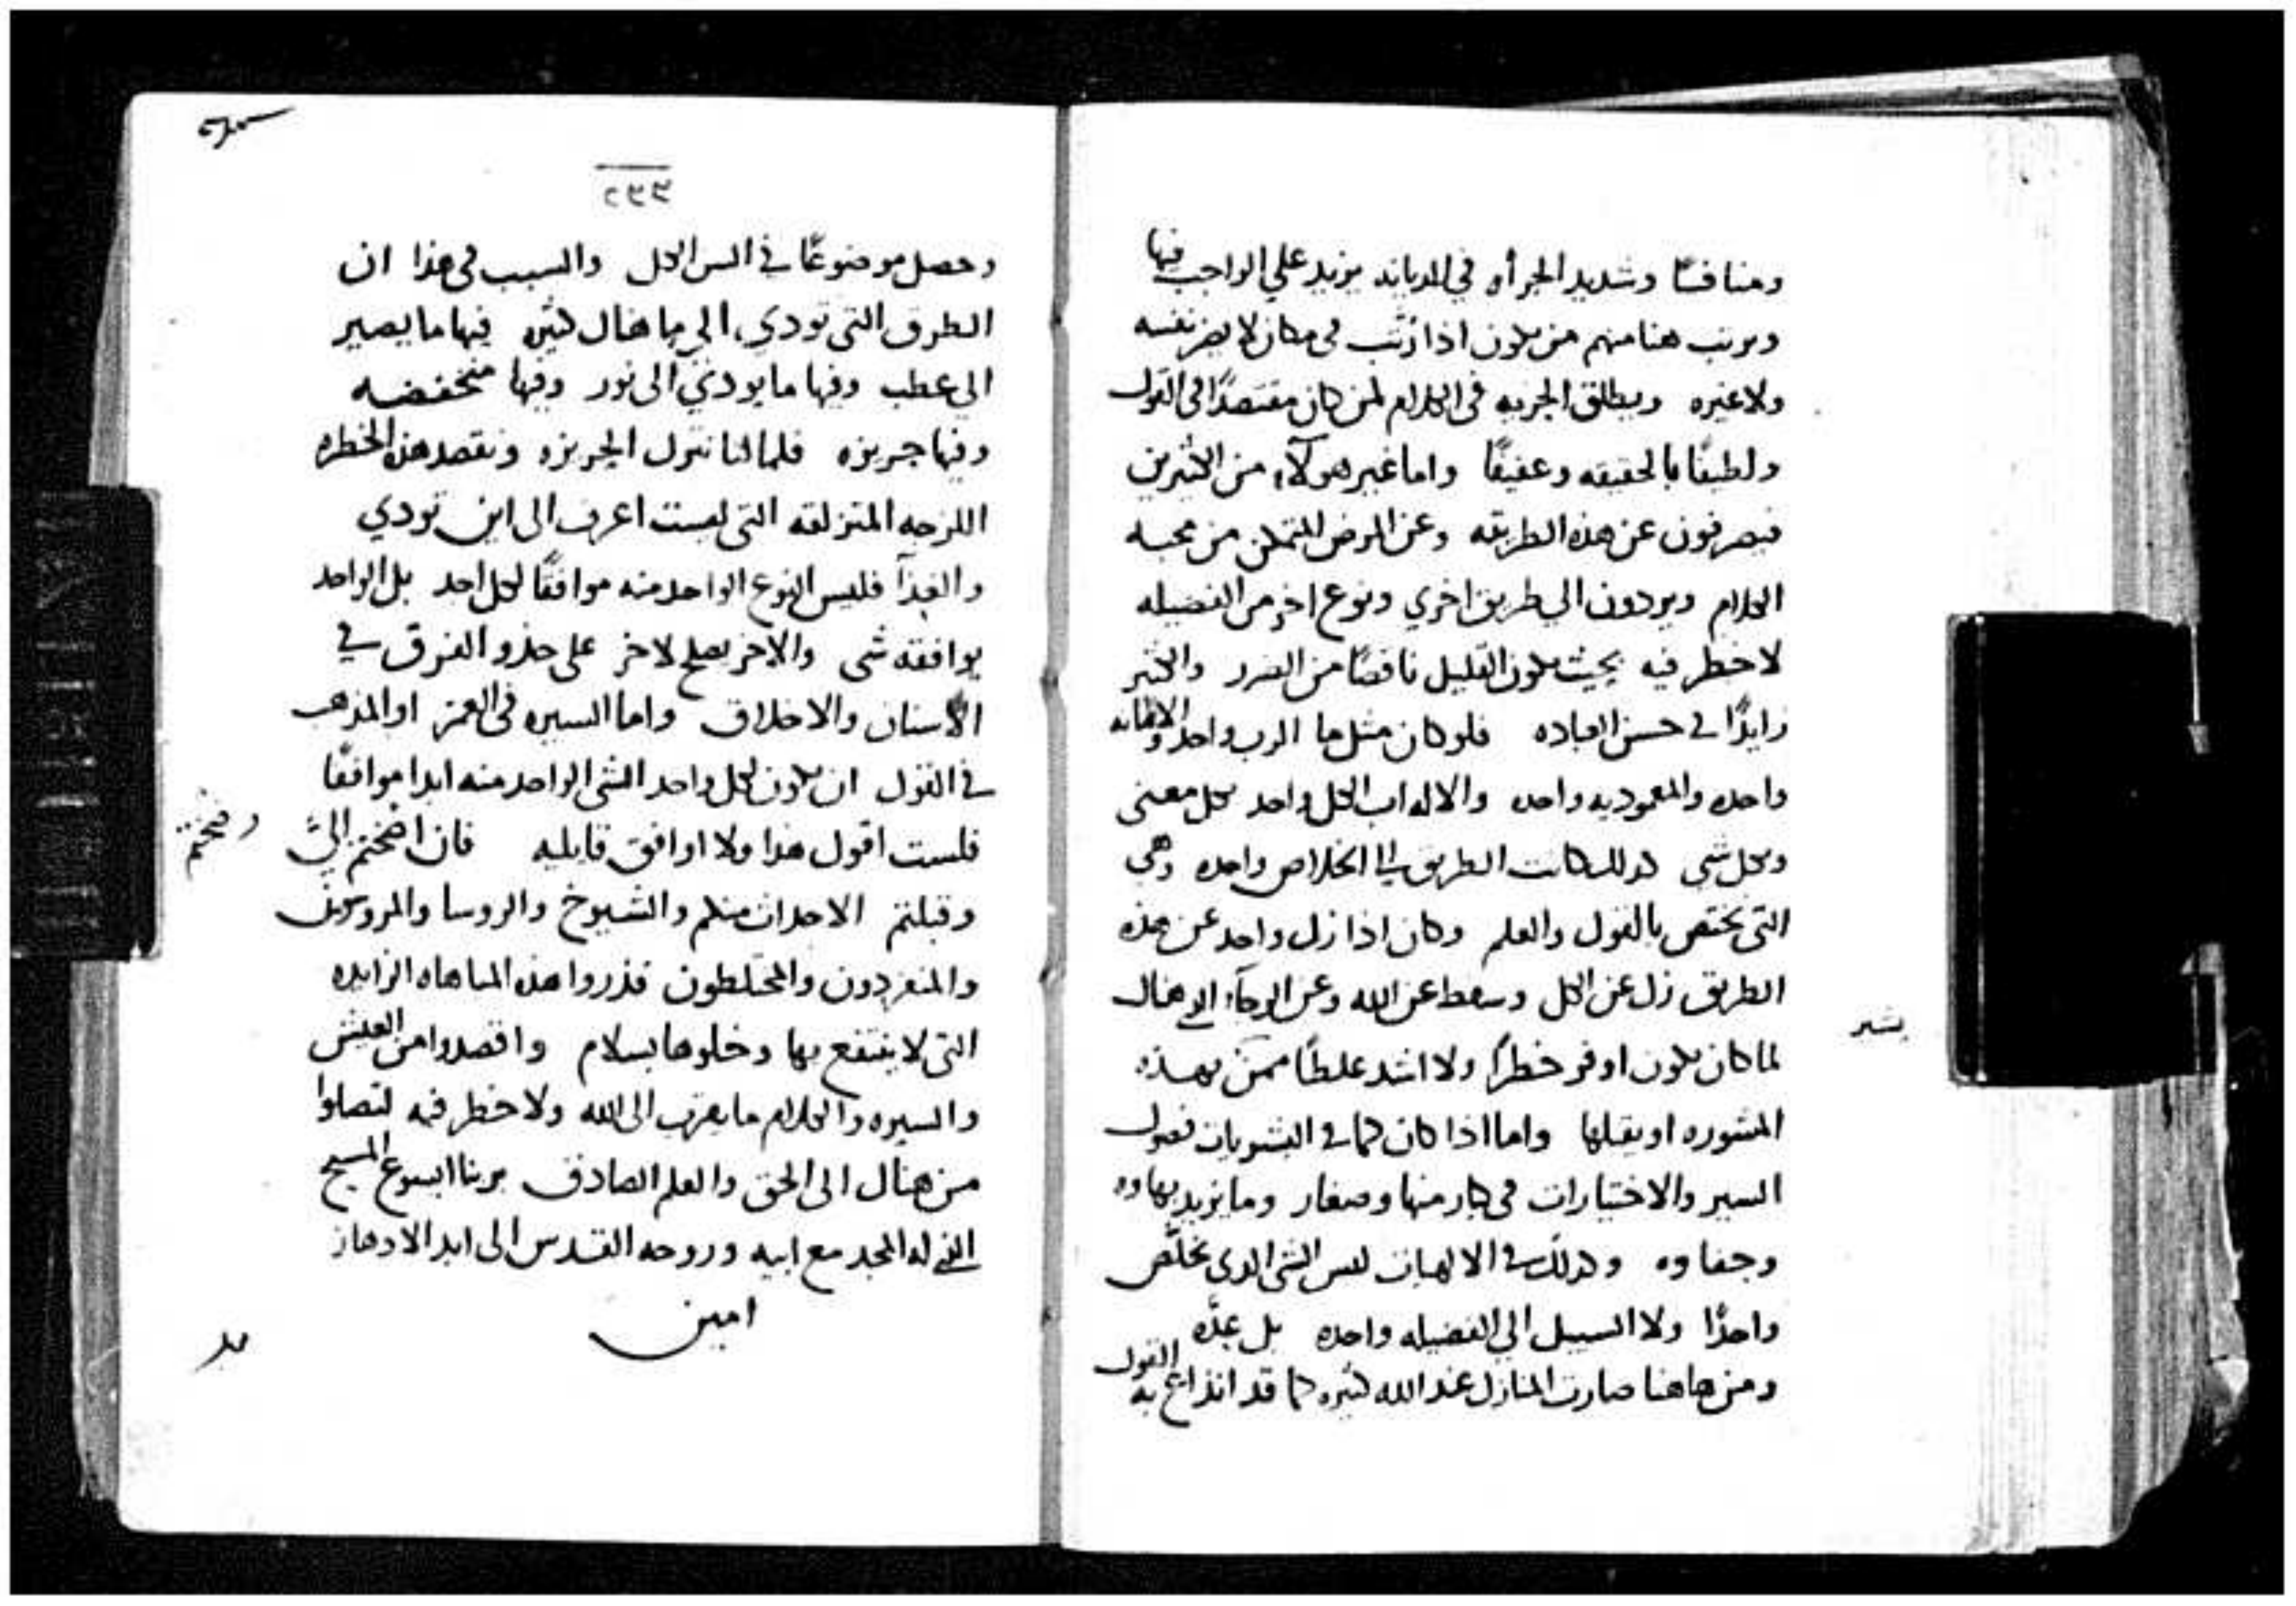 ومنافسًا وشديد الجرأه في الديانه يزيد علي الواجب فيها
ويرتب هنا منهم من يكون اذا رُتب في مكان لا يضر نفسه
ولا غيره ويطلق الحريه في الكلام لمن كان مقتصدًا في القول
ولطيفًا بالحقيقه وعفيفًا واما غير هولآء من الكثيرين
فيصرفون عن هذه الطريقه وعن المرض المتمكن من محبه
الكلام ويردون الي طريق اخري ونوع اخر من الفضيله
لا خطر فيه بحيث يكون القليل ناقصًا من الضرر والكثير
زايدًا في حسن العباده فلو كان مثل ما الرب واحد والامانه
واحده والمعموديه واحده والاله اب الكل واحد بكل معنى
وبكل شي كذلك كانت الطريق الى الخلاص واحده وهي
التى تختص بالقول والعلم وكان اذا زل واحد عن هذه
الطريق زل عن الكل وسقط عن الله وعن الرجآء الذي هناك
لما كان يكون اوفر خطرًا ولا اشد غلطًا ممن بهذه
المشوره او يقبلها واما اذا كان كما في البشريات فصول
بشر
السير والاختيارات في كبار منها وصغار وما يزيد بهاوه
وجفاوه وكذلك في الالهيات ليس الشي الذي يخلّص
واحدًا ولا السبيل الي الفضيله واحده بل عدّه
ومن هاهنا صارت المنازل عند الله كثيره كما قد انذاع به القول
٢٣٣
وحصل موضوعًا في السن الكل والسبب في هذا ان
الطرق التى تودي الي ما هناك كثيره فيها ما يصير
الى عطب وفيها ما يودي الى نور وفيها منخفضه
وفيها حريزه فلما لنا نترك الحريزه ونقصد هذه الخطره
اللزجه المتزلقه التى لست اعرف الى اين تودي
والغذآ فليس النوع الواحد منه موافقًا لكل احد بل الواحد
يوافقه شى والاخر يصلح لاخر على حذو الفرق في
الأسنان والاخلاق واما السيره في العمر او المذهب
في القول ان يكون لكل واحد الشى الواحد منه ابدا موافقًا
فلست اقول هذا ولا اوافق قايليه فان اضختم اليَّ
وضختم
وقبلتم الاحداث منكم والشيوخ والروسا والمروسون
والمنفردون والمختلطون فذروا هذه المباهاه الزايده
التى لا ينتفع بها وخلوها بسلام واقصدوا من العيش
والسيره والكلام ما يقرب الى الله ولا خطر فيه لتصلوا
من هناك الى الحق والعلم الصادق بربنا ايسوع المسيح
الذي له المجد مع ابيه وروحه القدس الى ابد الادهار
امين